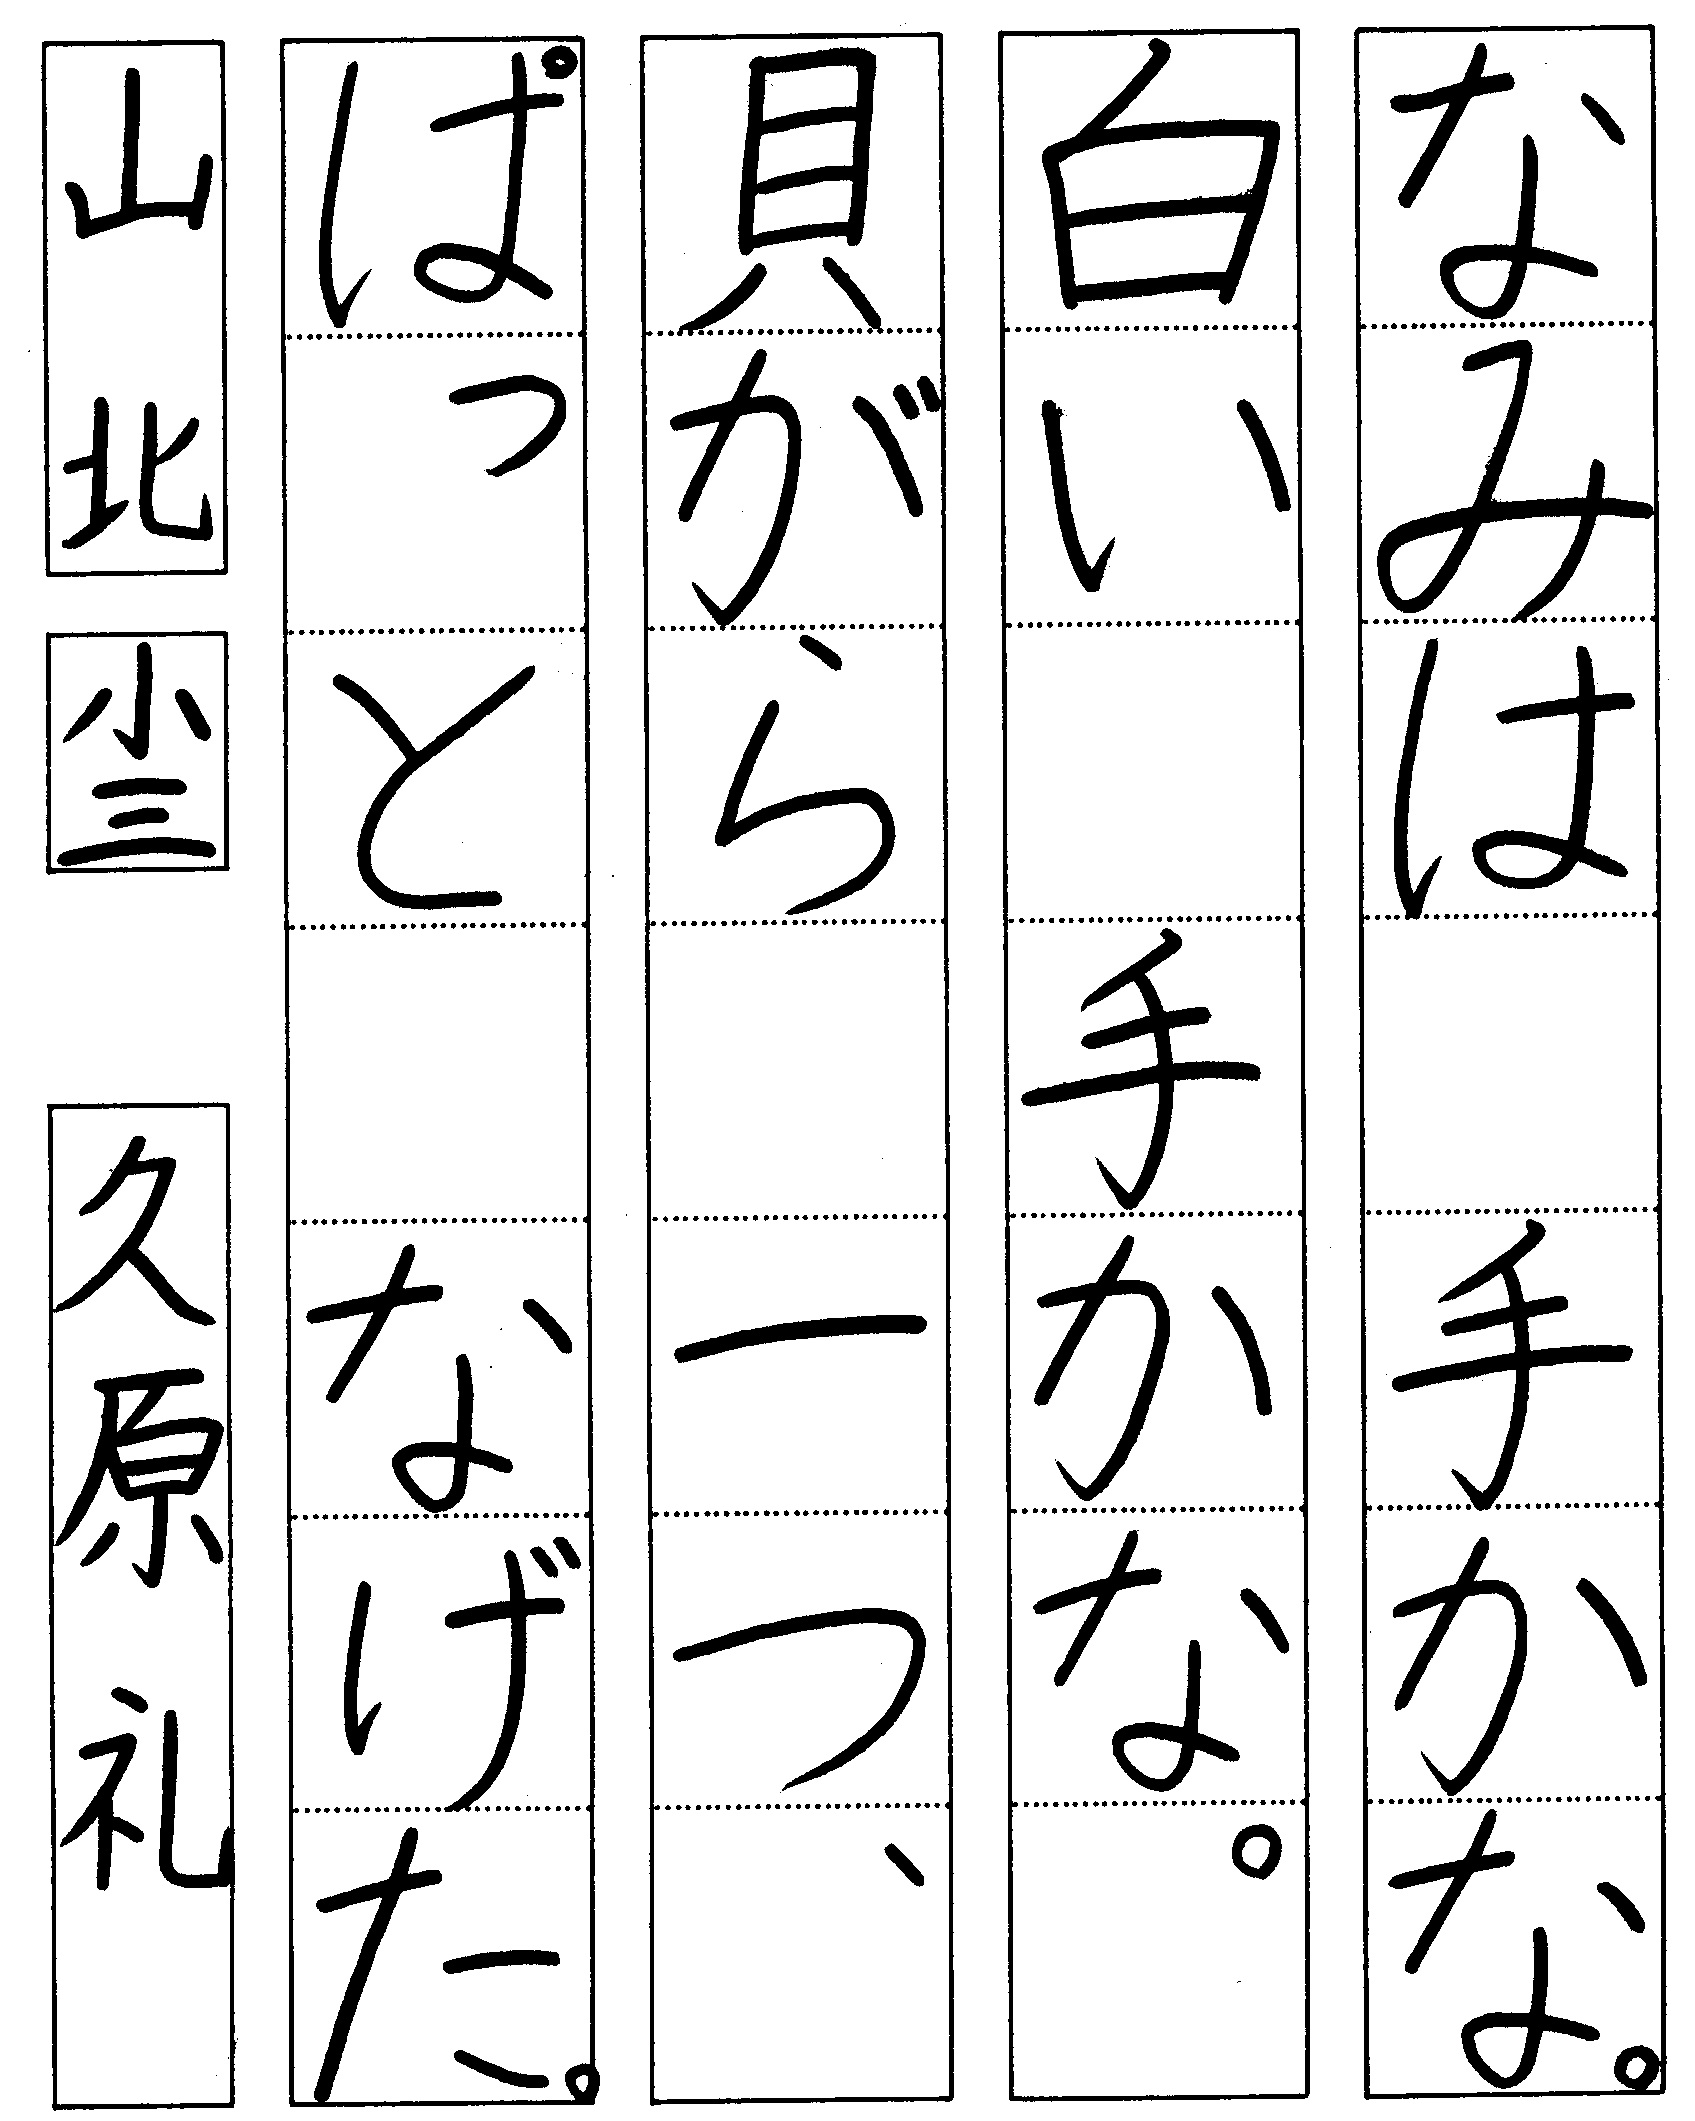 なみは　手かな。
白い　手かな。
貝がら　一つ、
ぱっと　なげた。
山北 小三 久原礼